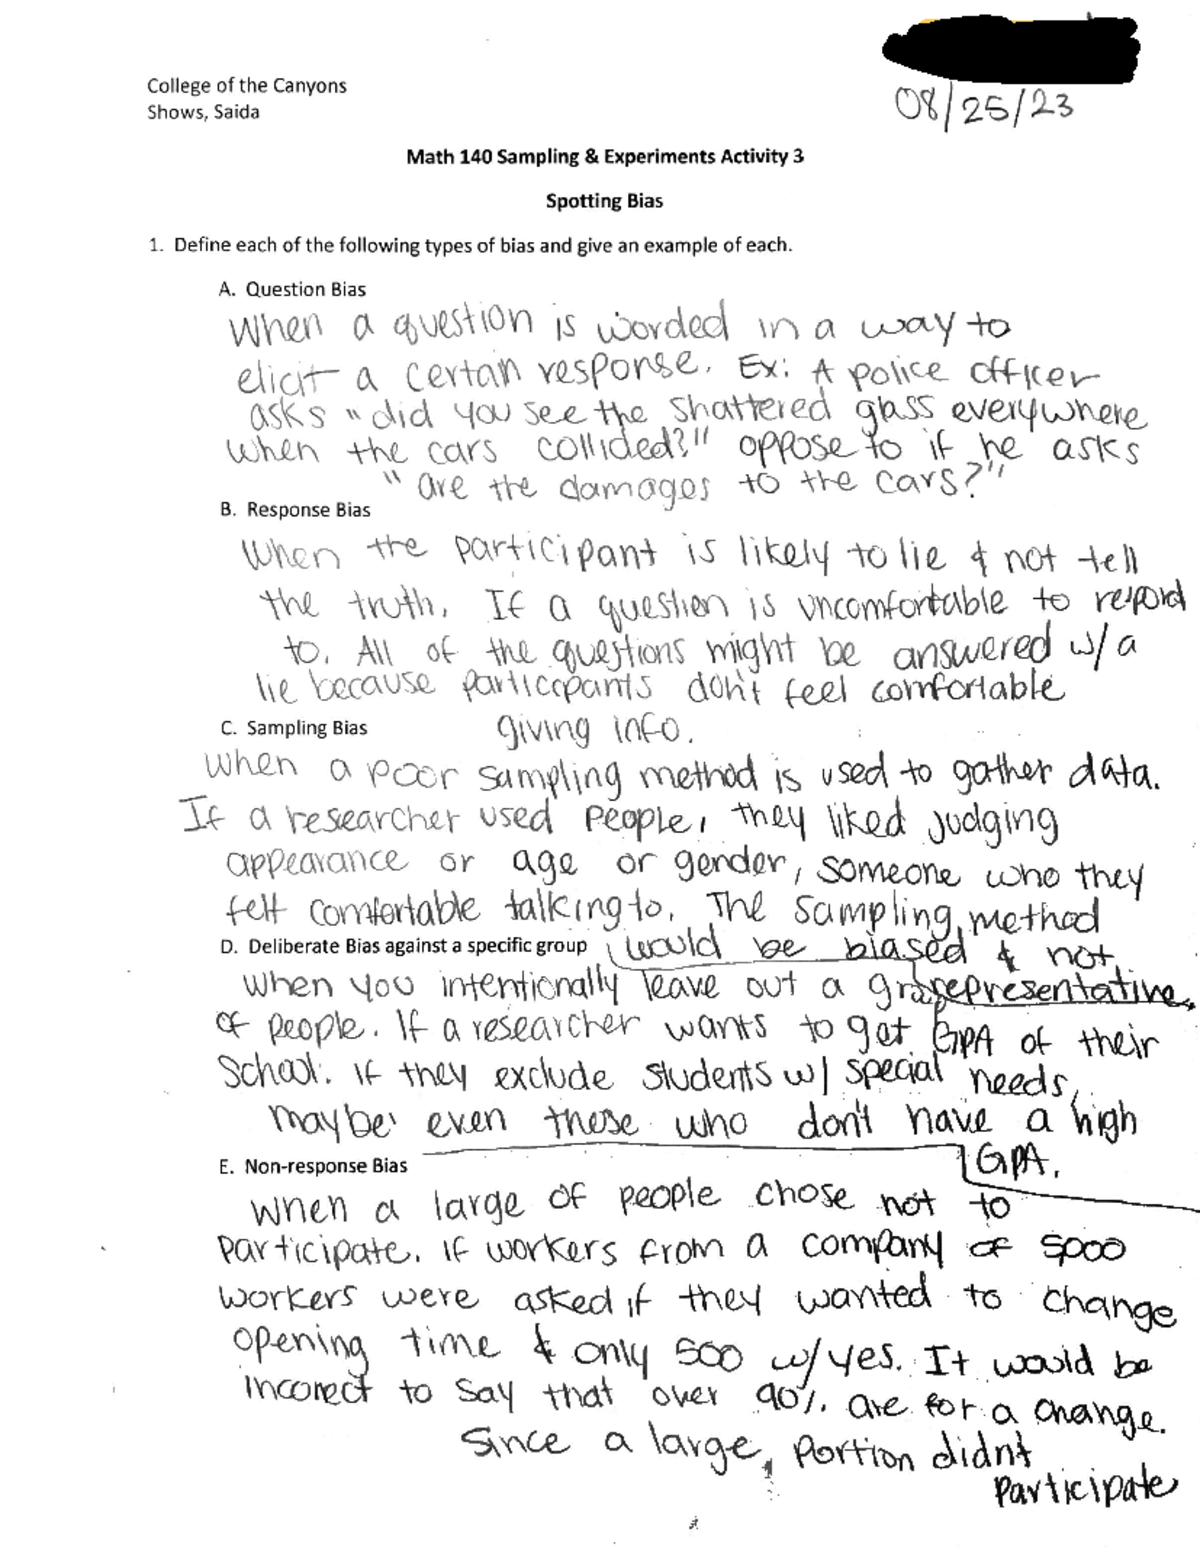 08/25/23
College of the Canyons
Shows, Saida
Math 140 Sampling & Experiments Activity 3
Spotting Bias
1. Define each of the following types of bias and give an example of each.
A. Question Bias
When a question is worded in a way to
elicit a certain response. Ex: A police officer
asks "did you see the shattered glass everywhere
when the cars collided?" oppose to if he asks
"are the damages to the cars?"
B. Response Bias
When the participant is likely to lie & not tell
the truth. If a question is uncomfortable to respond
to. All of the questions might be answered w/ a
lie because participants don't feel comfortable
giving info.
C. Sampling Bias
When a poor sampling method is used to gather data.
If a researcher used people, they liked judging
appearance or age or gender, someone who they
felt comfortable talking to. The sampling method
would be biased & not
representative.
D. Deliberate Bias against a specific group
When you intentionally leave out a
of people. If a researcher wants to get GPA of their
School. if they exclude students w/ special needs,
maybe even those who don't have a high
GPA.
E. Non-response Bias
When a large of people chose not to
participate. if workers from a company of 5000
workers were asked if they wanted to change
opening time & only 500 w/ yes. It would be
incorrect to say that over 90% are for a change.
Since a large portion didnt
participate